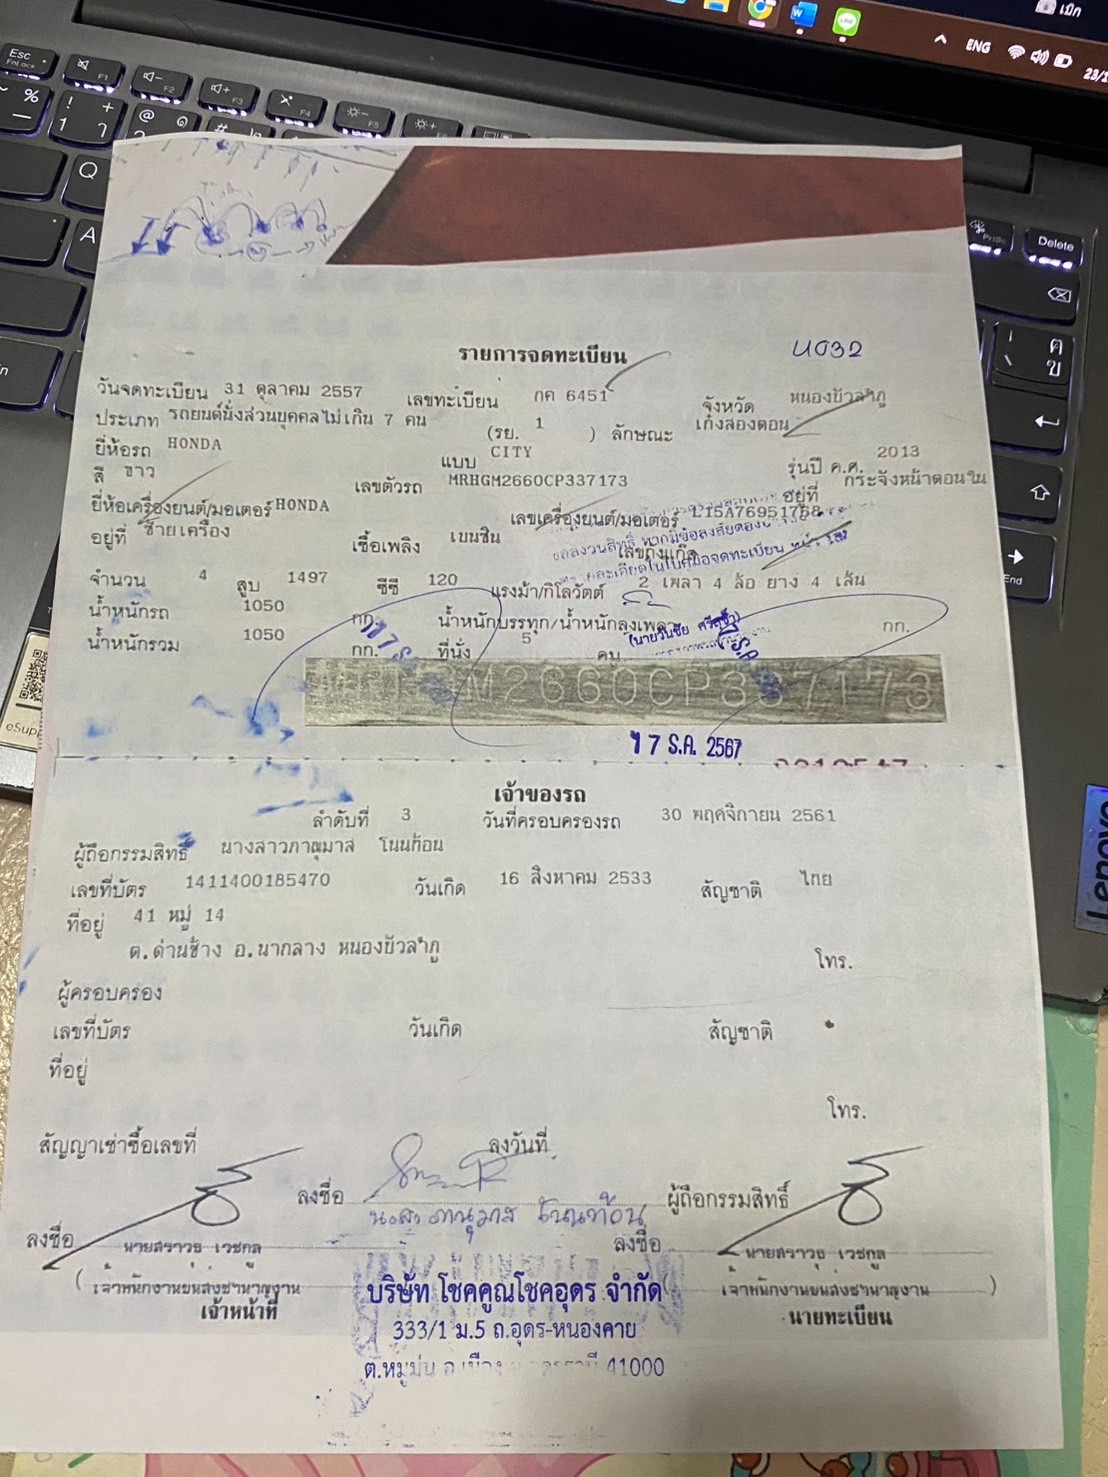 เบิก
ENG
Esc
FnLock
F1
F2
F3
F4
F5
Q
A
Delete
End
Lenovo
รายการจดทะเบียน
U032
วันจดทะเบียน 31 ตุลาคม 2557 เลขทะเบียน กค 6451 จังหวัด หนองบัวลำภู
ประเภท รถยนต์นั่งส่วนบุคคลไม่เกิน 7 คน (รย. 1 ) ลักษณะ เก๋งสองตอน
ยี่ห้อรถ HONDA แบบ CITY รุ่นปี ค.ศ. 2013
สี ขาว เลขตัวรถ MRHGM2660CP337173 อยู่ที่ กระจังหน้าตอนใน
ยี่ห้อเครื่องยนต์/มอเตอร์ HONDA เลขเครื่องยนต์/มอเตอร์ L15A76951758
อยู่ที่ ซ้ายเครื่อง เชื้อเพลิง เบนซิน เลขถังแก๊ส
ขอสงวนสิทธิ์ หากมีข้อสงสัย
จำนวน 4 สูบ 1497 ซีซี 120 แรงม้า/กิโลวัตต์ 2 เพลา 4 ล้อ ยาง 4 เส้น
น้ำหนักรถ 1050 กก. น้ำหนักบรรทุก/น้ำหนักลงเพลา กก.
น้ำหนักรวม 1050 กก. ที่นั่ง 5 คน
MRHGM2660CP337173
17 ธ.ค. 2567
เจ้าของรถ
ลำดับที่ 3 วันที่ครอบครองรถ 30 พฤศจิกายน 2561
ผู้ถือกรรมสิทธิ์ นางสาวภาณุมาส โนนก้อน
เลขที่บัตร 1411400185470 วันเกิด 16 สิงหาคม 2533 สัญชาติ ไทย
ที่อยู่ 41 หมู่ 14
ต.ด่านช้าง อ.นากลาง หนองบัวลำภู
โทร.
ผู้ครอบครอง
เลขที่บัตร วันเกิด สัญชาติ
ที่อยู่
โทร.
สัญญาเช่าซื้อเลขที่ ลงวันที่
ลงชื่อ ผู้ถือกรรมสิทธิ์
ลงชื่อ นายสราวุธ เวชกูล ลงชื่อ นายสราวุธ เวชกูล
(เจ้าพนักงานขนส่งชำนาญงาน (เจ้าพนักงานขนส่งชำนาญงาน )
เจ้าหน้าที่ นายทะเบียน
บริษัท โชคคูณโชคอุดร จำกัด
333/1 ม.5 ถ.อุดร-หนองคาย
ต.หมูม่น อ.เมือง 41000